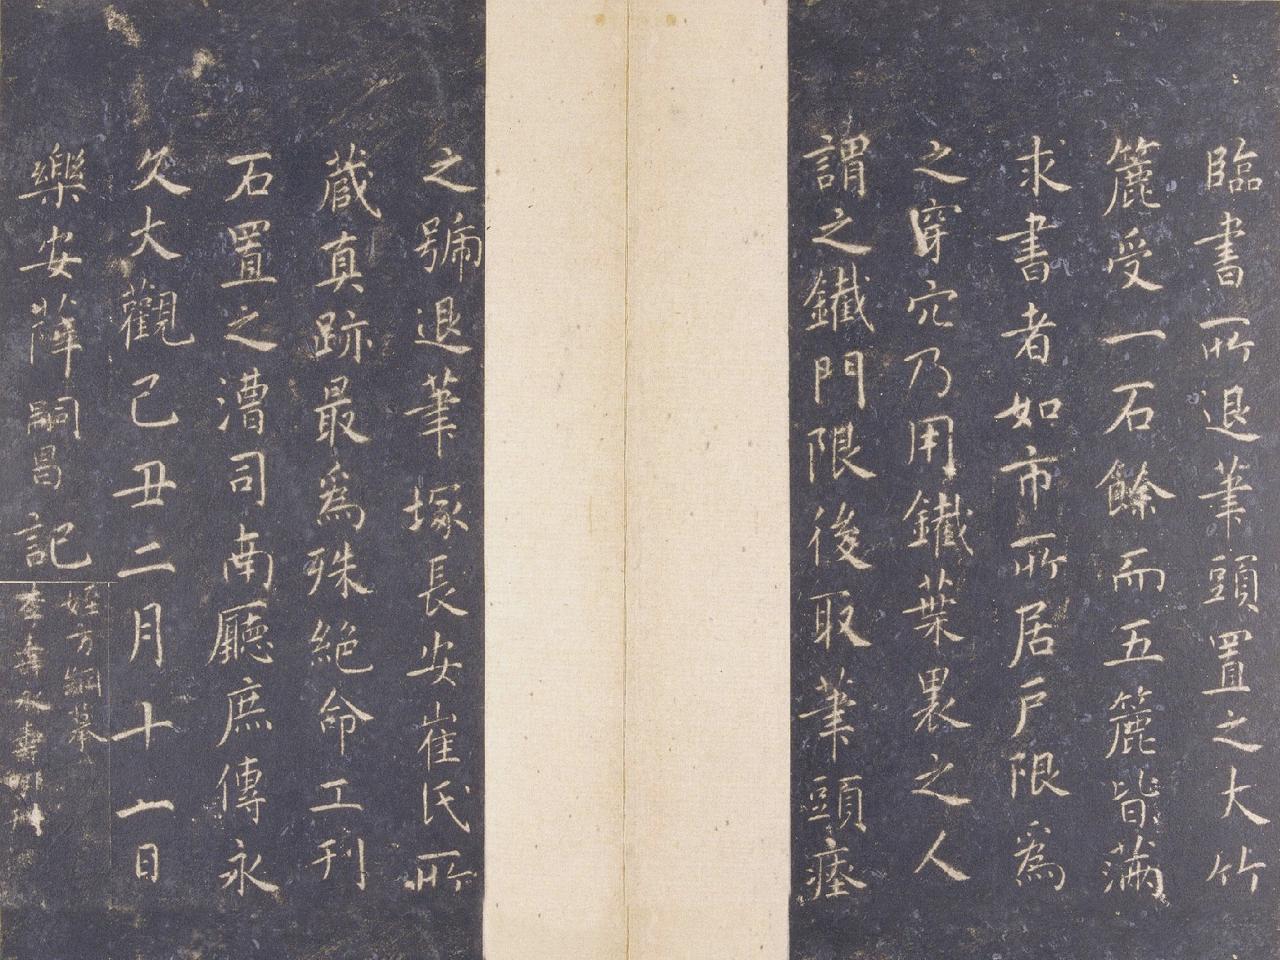 臨書所退筆頭置之大竹
簏受一石餘而五簏皆滿
求書者如市所居戶限爲
之穿穴乃用鐵葉裹之人
謂之鐵門限後取筆頭瘞
之號退筆塚長安崔氏所
蔵真跡最爲殊絕命工刊
石置之漕司南廳庶傳永
久大觀己丑二月十一日
樂安薛嗣昌記
姪方綱摹
李壽永壽